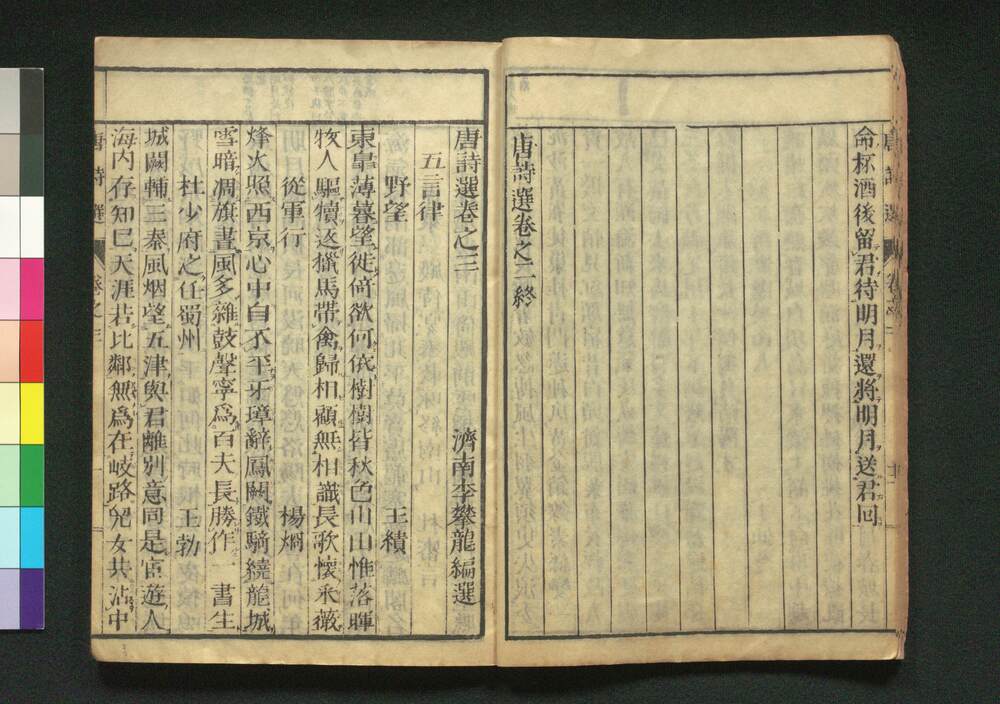 命杯酒後留君待明月還將明月送君回
唐詩選卷之二終
唐詩選卷之三
濟南李攀龍編選
五言律
野望
王績
東皐薄暮望徙倚欲何依樹樹皆秋色山山惟落暉
牧人驅犢返獵馬帶禽歸相顧無相識長歌懷采薇
從軍行
楊烱
烽火照西京心中自不平牙璋辭鳳闕鐵騎繞龍城
雪暗凋旗畫風多雜鼓聲寧爲百夫長勝作一書生
杜少府之任蜀州
王勃
城闕輔三秦風烟望五津與君離別意同是宦遊人
海内存知己天涯若比鄰無爲在岐路兒女共沾巾
唐詩選
卷之三